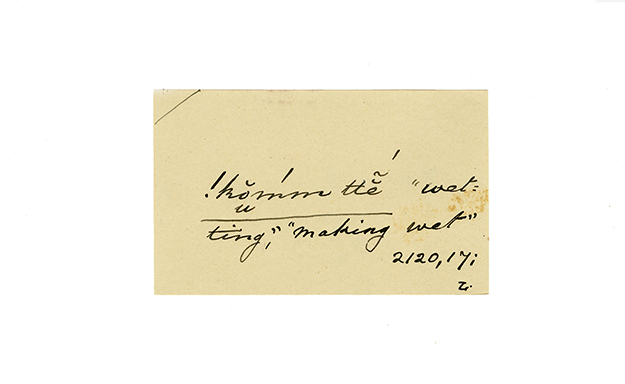 !kŏmm ttẽ́ "wet-
ting," "making wet"
2120,17;